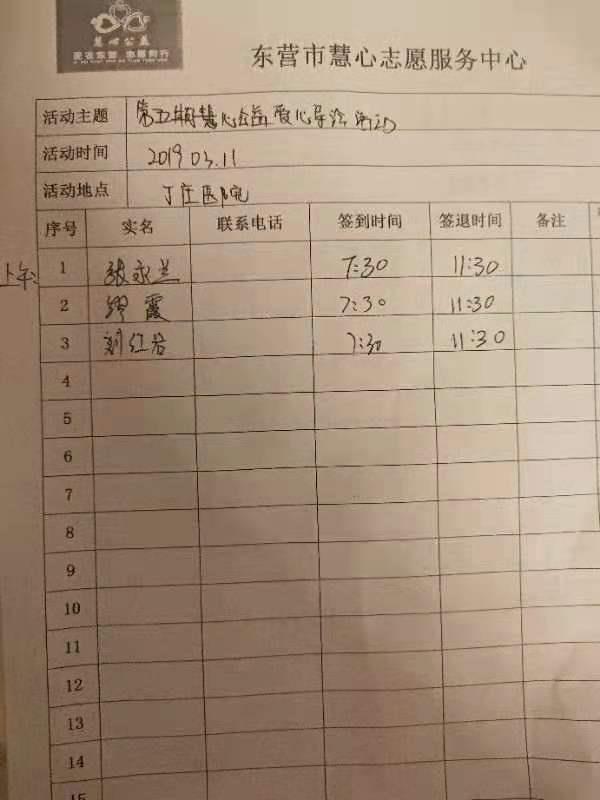 慧心公益
东营市慧心志愿服务中心
活动主题 第五期慧心公益爱心导诊活动
活动时间 2019 03.11
活动地点 丁庄医院
序号 实名 联系电话 签到时间 签退时间 备注
上午:
1 张永兰 7:30 11:30
2 缪霞 7:30 11:30
3 刘红岩 7:30 11:30
4
5
6
7
8
9
10
11
12
13
14
15